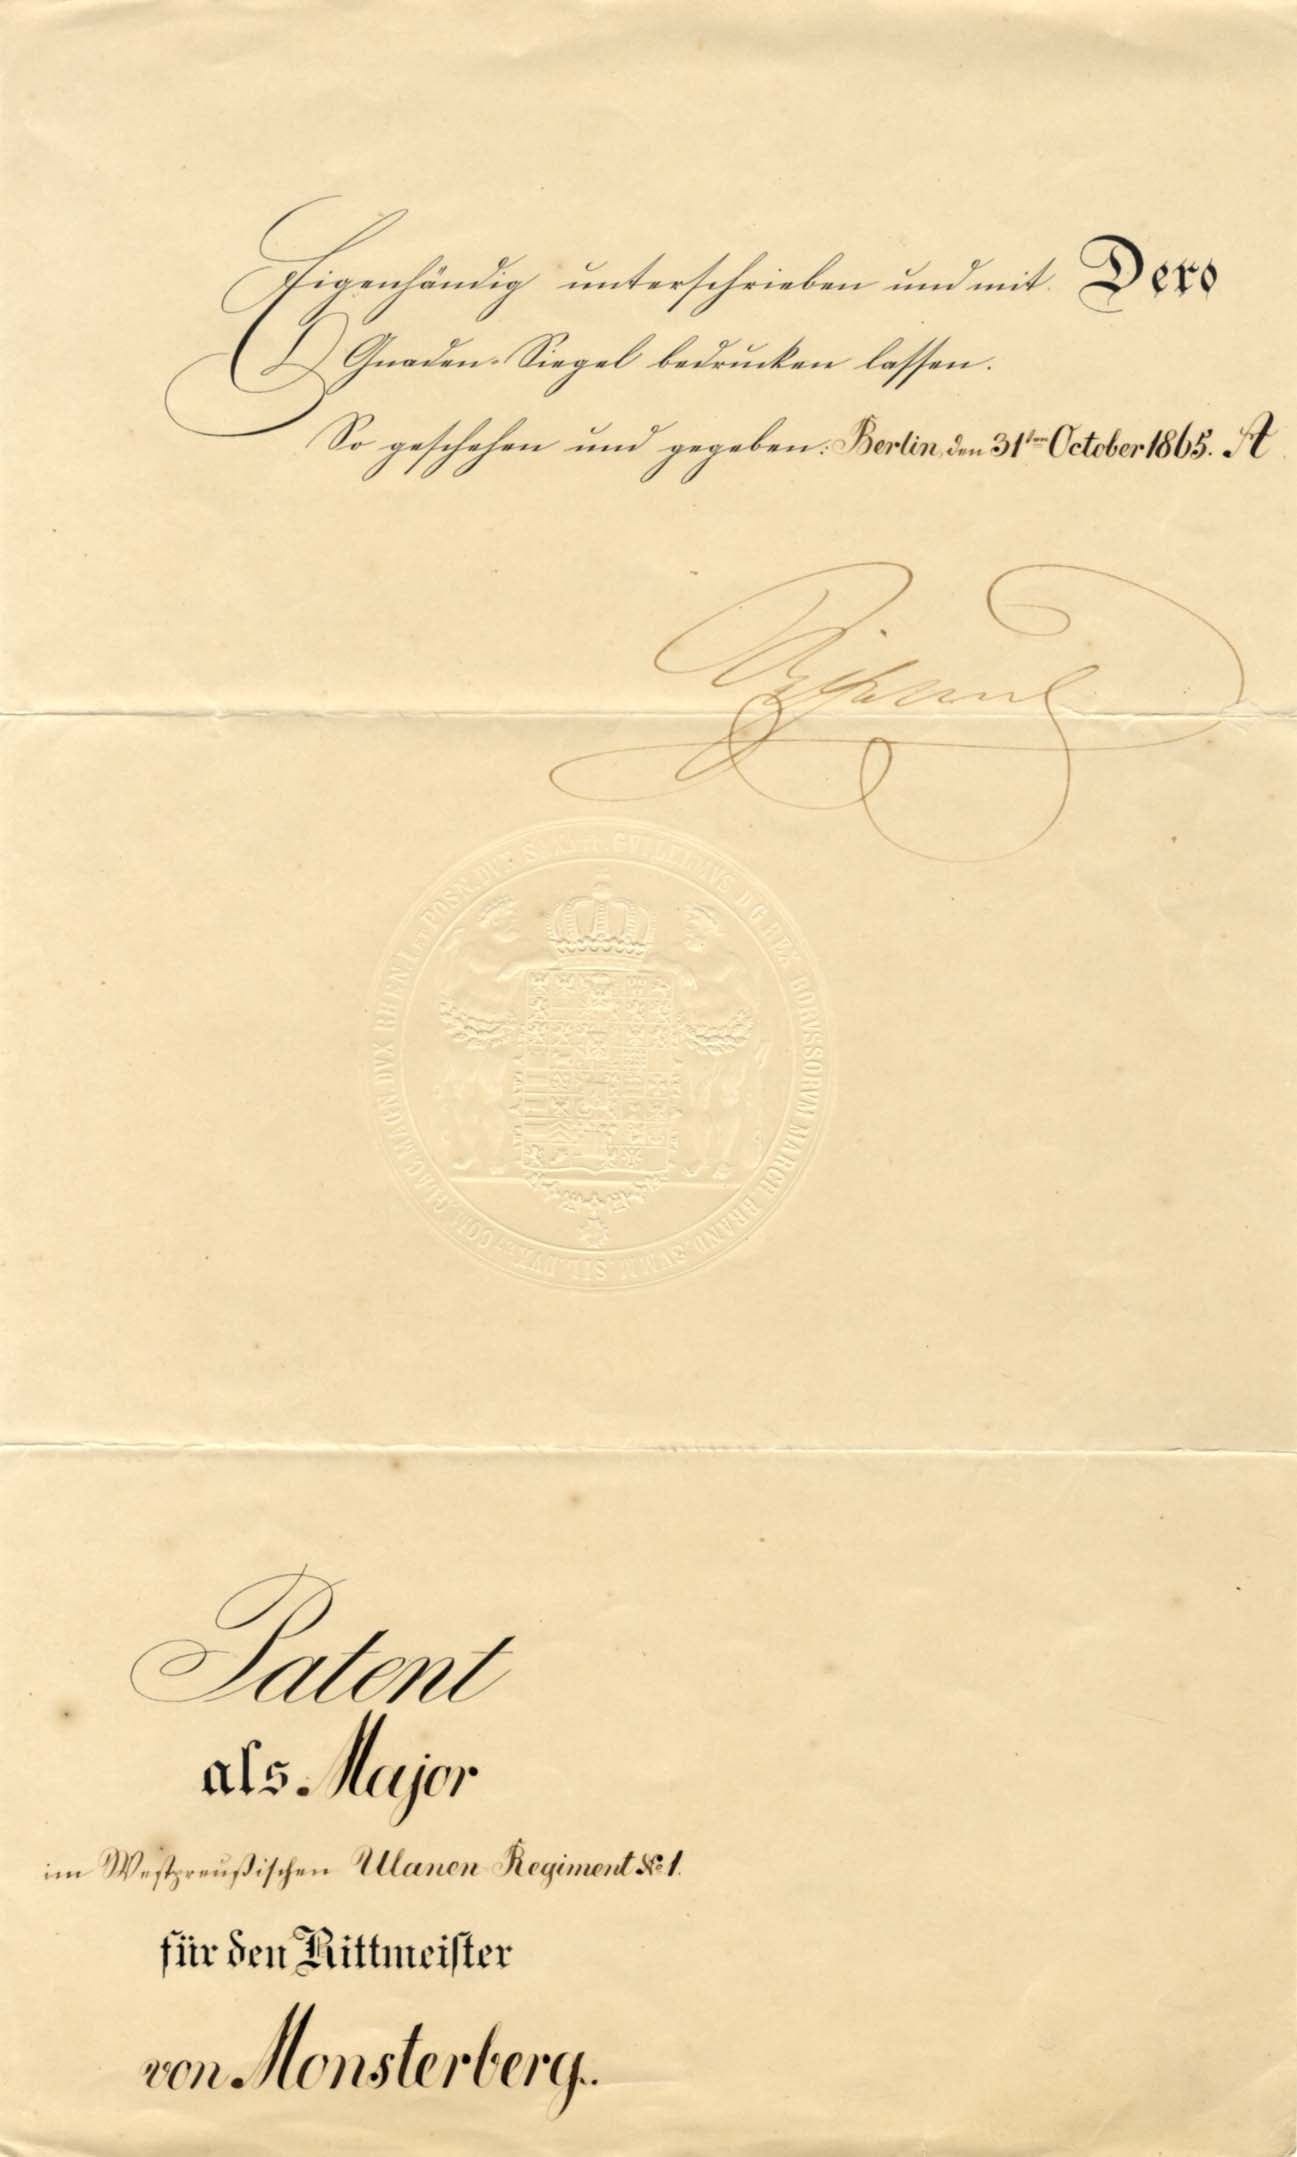 Eigenhändig unterschrieben und mit Dero
Gnaden-Siegel bedrucken lassen.
So geschehen und gegeben: Berlin, den 31ten October 1865.
Wilhelm
GUILELMUS D.G. REX BORVSSORVM MARCH. BRAND. SVMM. SIL. DVX ET COM. GLAC. MAGN. DVX RHEN. I. ET POSN. DVX SAX. ET
Patent
als Major
im Westpreußischen Ulanen Regiment No 1.
für den Rittmeister
von Monsterberg.